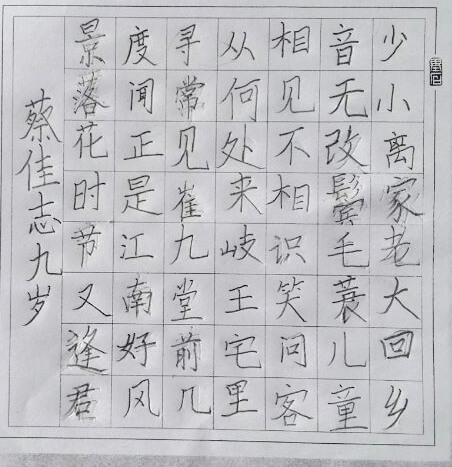 少小离家老大回乡
音无改鬓毛蓑儿童
相见不相识笑问客
从何处来岐王宅里
寻常见崔九堂前几
度闻正是江南好风
景落花时节又逢君
蔡佳志九岁